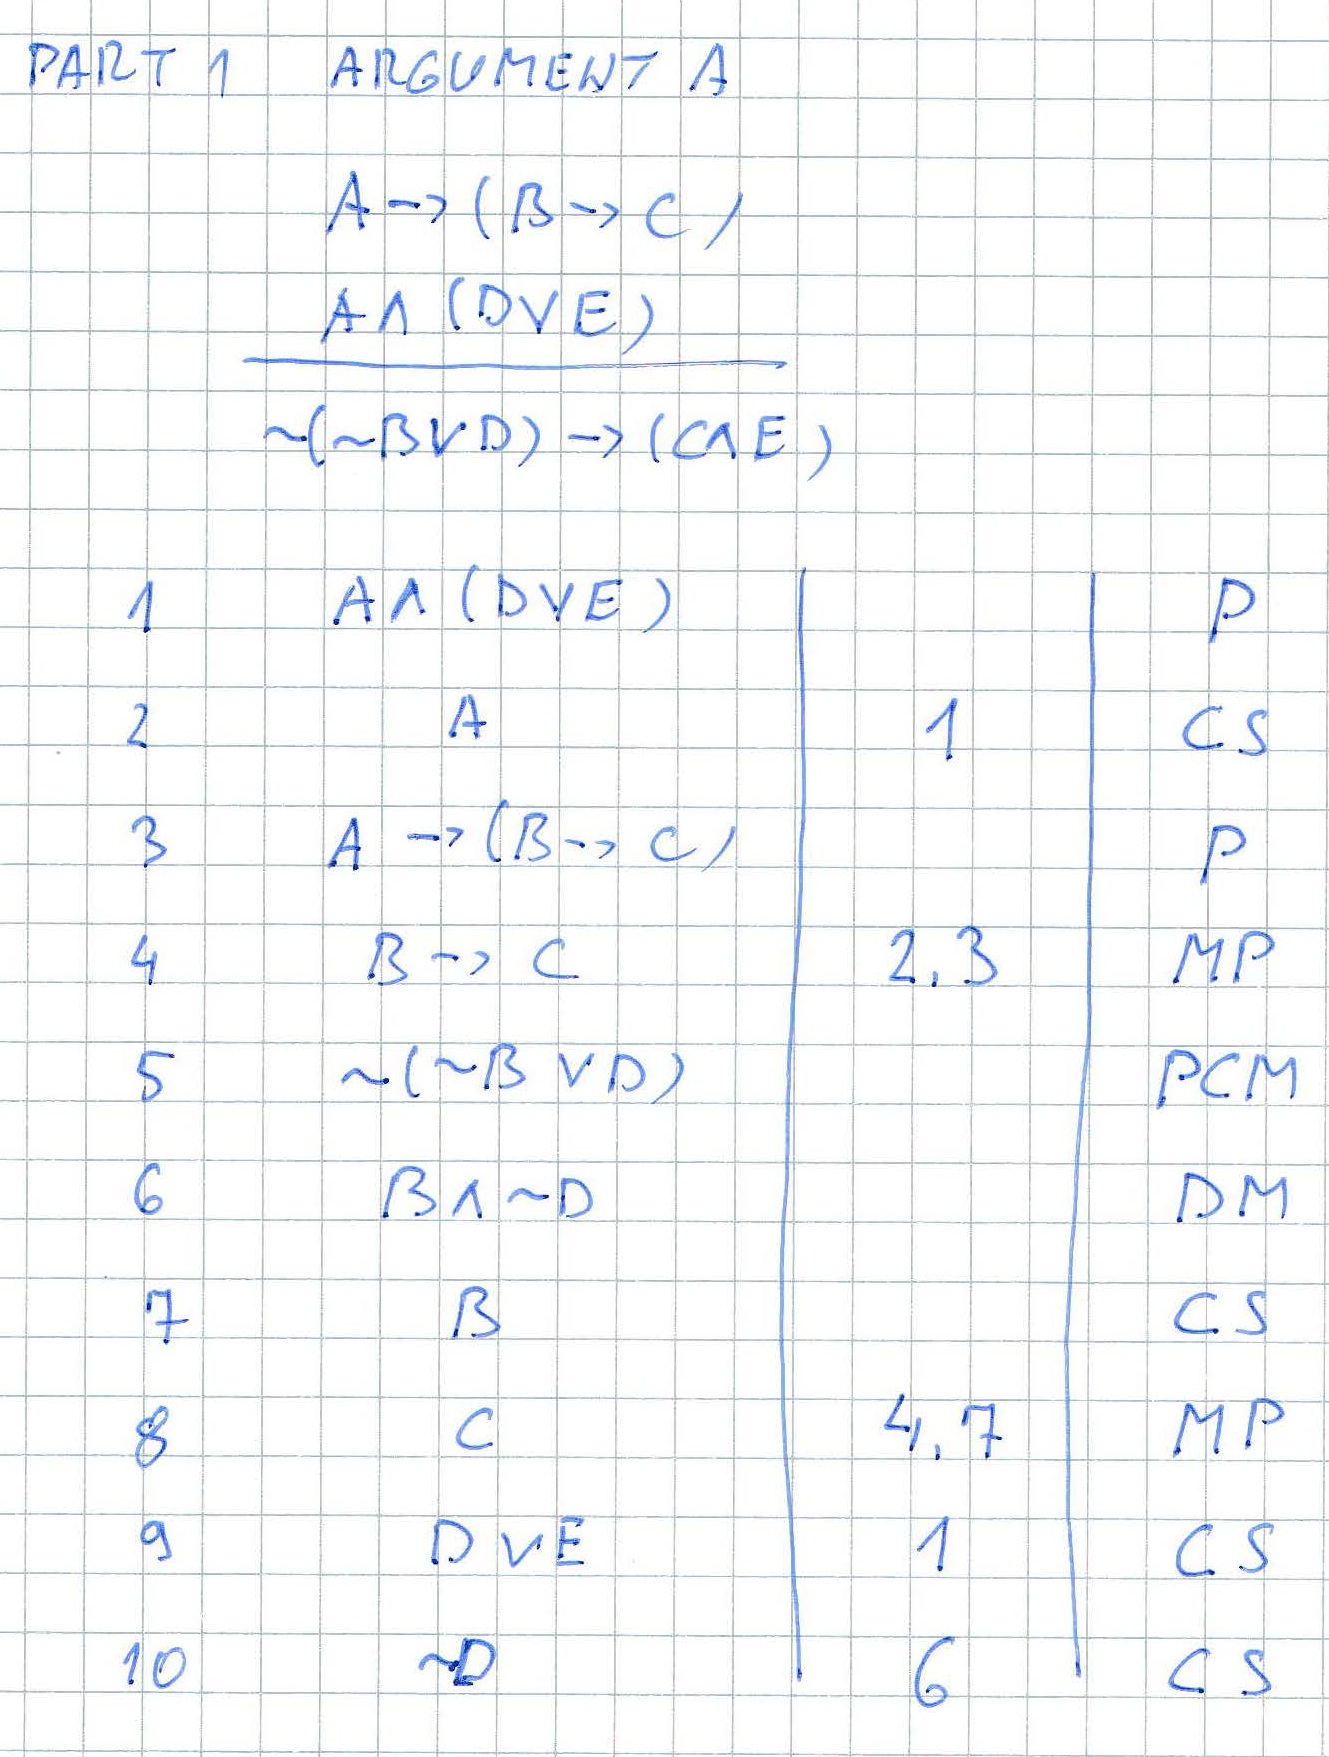 PART 1 ARGUMENT A
A -> (B -> C)
A ∧ (D ∨ E)
~(~B ∨ D) -> (C ∧ E)
1 A ∧ (D ∨ E) P
2 A 1 CS
3 A -> (B -> C) P
4 B -> C 2,3 MP
5 ~(~B ∨ D) PCM
6 B ∧ ~D DM
7 B CS
8 C 4,7 MP
9 D ∨ E 1 CS
10 ~D 6 CS